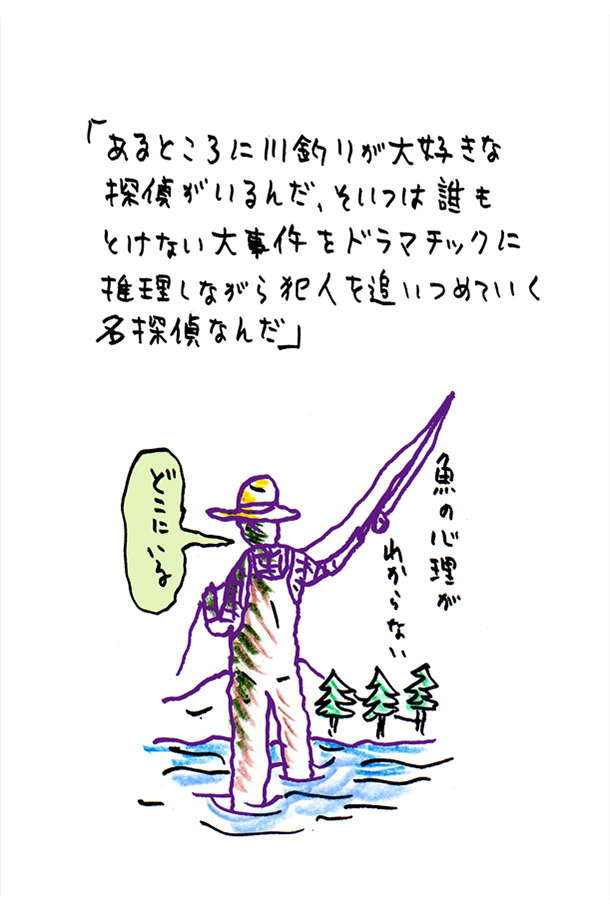 「あるところに川釣りが大好きな
探偵がいるんだ、そいつは誰も
とけない大事件をドラマチックに
推理しながら犯人を追いつめていく
名探偵なんだ」
どこにいる
魚の心理が
わからない